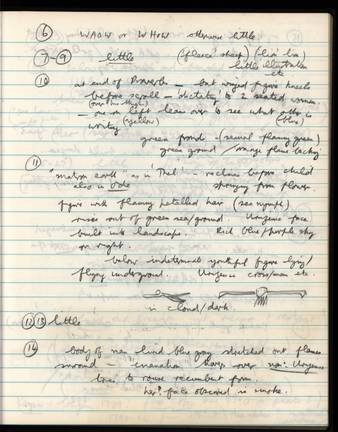 6 WAOW or WHOW otherwise little
7-9 little (fleece' sheep) (lion' lion)
little illustrations
etc
10 at end of Proverbs - bat winged figure kneels
before scroll - 'dictates' to 2 seated women.
(over his thigh)
- one on left leans over to see what other is
writing. (yellow) (blue)
green fronds - (several flaming green)
green ground / orange flame backing
11 "matron earth" as in Thel - reclines before child
also in Ode springing from flower.
figure with flaming petalled hair (sea nymph)
rises out of green sea/ground. Urizenic face
built into landscape. Red blue/purple sky
on right.
below indeterminate youthful figure lying/
flying underground. Urizenic crossman etc.
in cloud/dark
12 13 little
14 body of man lurid blue gray stretched out flames
around - 'emanation' hovers over Urizenic
tries to rouse recumbent form.
her face obscured in smoke.